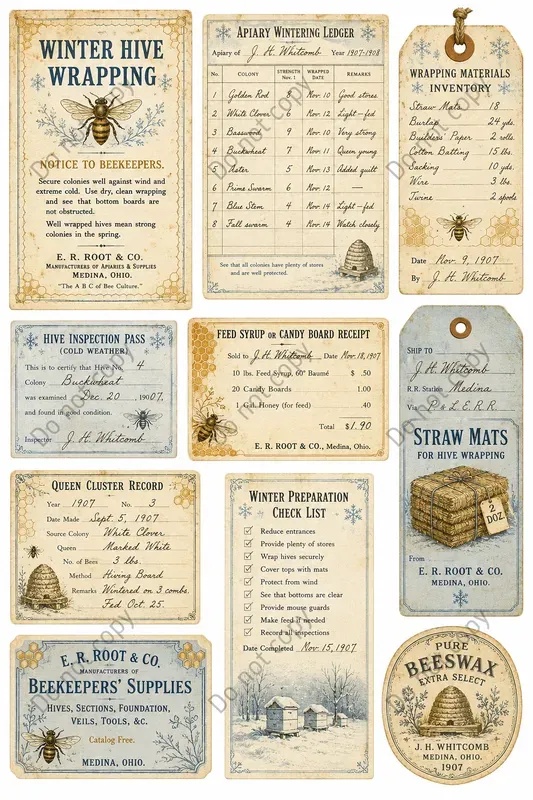 WINTER HIVE
WRAPPING
NOTICE TO BEEKEEPERS.
Secure colonies well against wind and
extreme cold. Use dry, clean wrapping
and see that bottom boards are
not obstructed.
Well wrapped hives mean strong
colonies in the spring.
E. R. ROOT & CO.
MANUFACTURERS OF APIARIES & SUPPLIES
MEDINA, OHIO.
"The A B C of Bee Culture."
APIARY WINTERING LEDGER
Apiary of J. H. Whitcomb Year 1907-1908
No. COLONY STRENGTH Nov. 1 WRAPPED DATE REMARKS
1 Golden Rod 8 Nov. 10 Good stores
2 White Clover 6 Nov. 12 Light-fed
3 Basswood 9 Nov. 10 Very strong
4 Buckwheat 7 Nov. 11 Queen young
5 Aster 5 Nov. 13 Added quilt
6 Prime Swarm 6 Nov. 12 —
7 Blue Stem 4 Nov. 14 Light-fed
8 Fall swarm 4 Nov. 14 Watch closely
See that all colonies have plenty of stores
and are well protected.
WRAPPING MATERIALS
INVENTORY
Straw Mats 18
Burlap 24 yds.
Builders Paper 2 rolls.
Cotton Batting 15 lbs.
Sacking 10 yds.
Wire 3 lbs.
Twine 2 spools
Date Nov. 9, 1907
By J. H. Whitcomb
HIVE INSPECTION PASS
(COLD WEATHER)
This is to certify that Hive No. 4
Colony Buckwheat
was examined Dec. 20, 1907.
and found in good condition.
Inspector J. H. Whitcomb
FEED SYRUP OR CANDY BOARD RECEIPT
Sold to J. H. Whitcomb Date Nov. 18, 1907
10 lbs. Feed Syrup, 60° Baumé $ .50
20 Candy Boards 1.00
1 Gal. Honey (for feed) .40
Total $1.90
E. R. ROOT & CO., Medina, Ohio.
SHIP TO
J. H. Whitcomb
R.R. Station Medina
Via & L.E.R.R.
STRAW MATS
FOR HIVE WRAPPING
2
DOZ
From
E. R. ROOT & CO.
MEDINA, OHIO.
QUEEN CLUSTER RECORD
Year 1907 No. 3
Date Made Sept. 5, 1907
Source Colony White Clover
Queen Marked White
No. of Bees 3 lbs.
Method Hiving Board
Remarks Wintered on 3 combs.
Fed Oct. 25.
WINTER PREPARATION
CHECK LIST
Reduce entrances
Provide plenty of stores
Wrap hives securely
Cover tops with mats
Protect from wind
See that bottoms are clear
Provide mouse guards
Make feed if needed
Record all inspections
Date Completed Nov. 15, 1907
E. R. ROOT & CO.
MANUFACTURERS OF
BEEKEEPERS' SUPPLIES
HIVES, SECTIONS, FOUNDATION,
VEILS, TOOLS, &C.
Catalog Free.
MEDINA, OHIO.
PURE
BEESWAX
EXTRA SELECT
J. H. WHITCOMB
MEDINA, OHIO.
1907
Do not copy
Do not copy
Do not copy
Do not copy
Do not copy
Do not copy
Do not copy
Do not copy
Do not copy